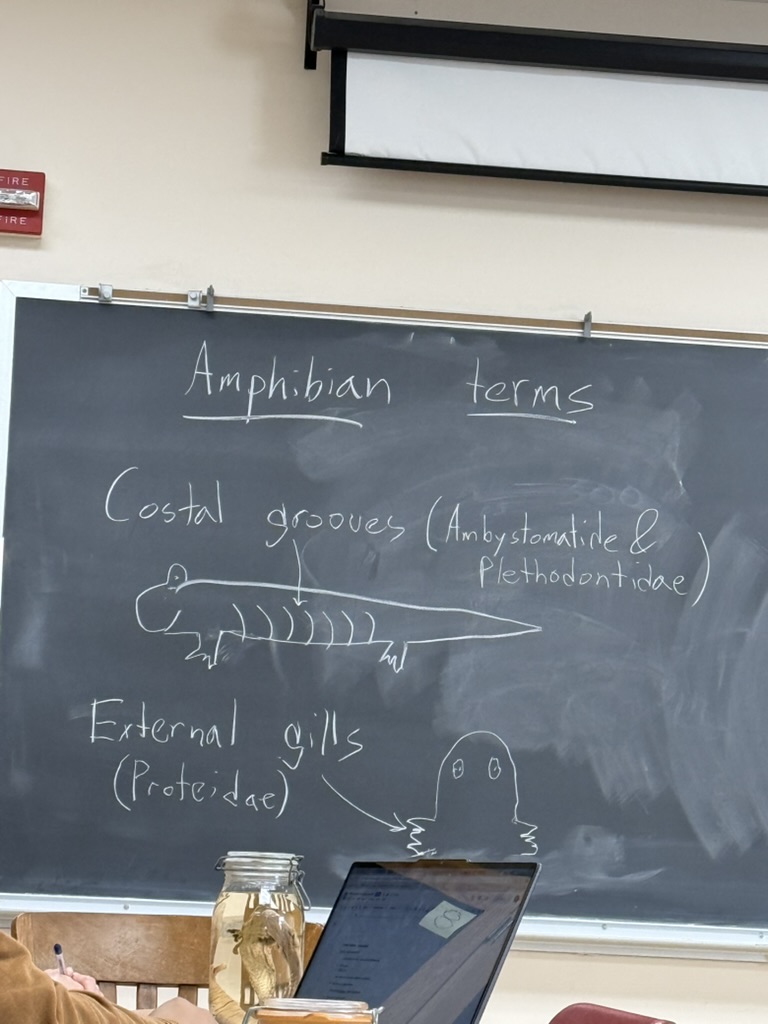 FIRE
FIRE
Amphibian terms
Costal grooves (Ambystomatide &
Plethodontidae)
External gills
(Proteidae)